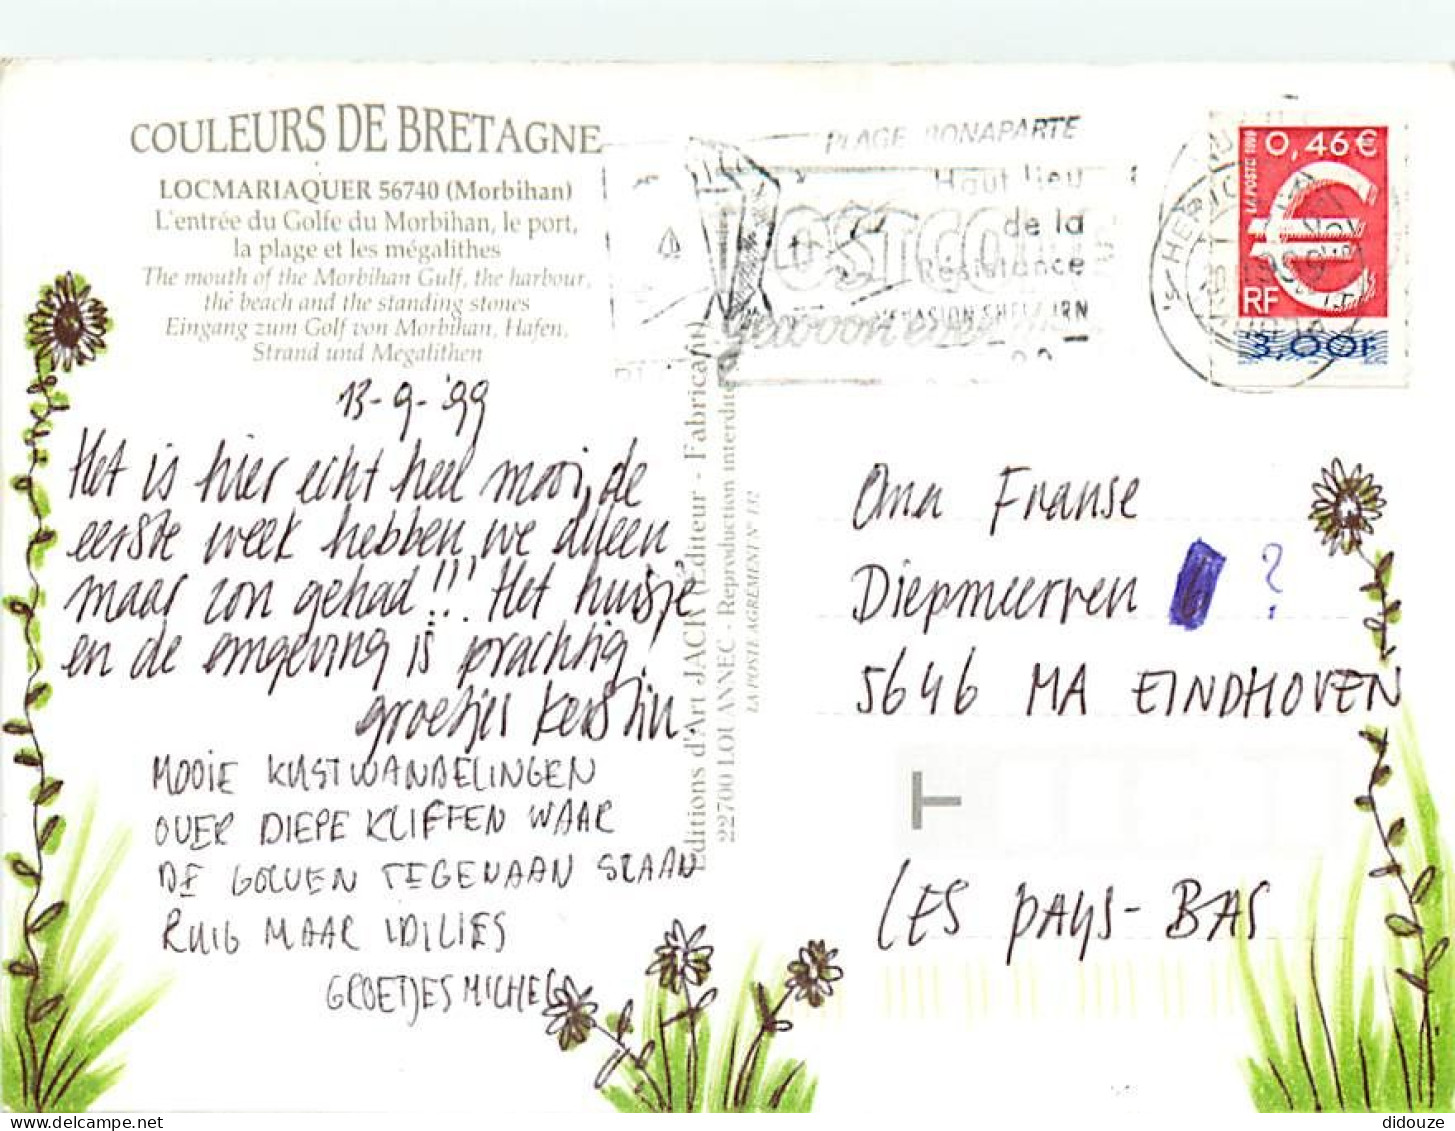 COULEURS DE BRETAGNE
LOCMARIAQUER 56740 (Morbihan)
L'entrée du Golfe du Morbihan, le port,
la plage et les mégalithes
The mouth of the Morbihan Gulf, the harbour,
the beach and the standing stones
Eingang zum Golf von Morbihan, Hafen,
Strand und Megalithen
13-9-'99
Het is hier echt heel mooi, de
eerste week hebben we alleen
maar zon gehad!!! Het huisje
en de omgeving is prachtig!
groetjes Kerstin.
MOOIE KUSTWANDELINGEN
OVER DIEPE KLIFFEN WAAR
DE GOLVEN TEGENAAN SLAAN
RUIG MAAR
GROETJES MICHEL
Editions d'Art JACK (Editeur - Fabricant)
22700 LOUANNEC - Reproduction interdite
LA POSTE AGREMENT N° 132
PLAGE BONAPARTE
Haut lieu
de la
Résistance
EVASION SHELBURN
0,46 €
LA POSTE 1999
RF
3,00F
Oma Franse
Diepmeerven ?
5646 MA EINDHOVEN
T
LES PAYS-BAS
delcampe.net
didouze